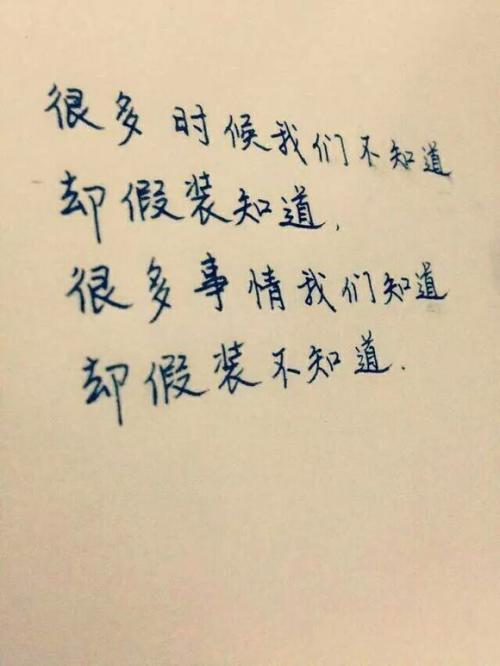 很多时候我们不知道
却假装知道,
很多事情我们知道
却假装不知道.